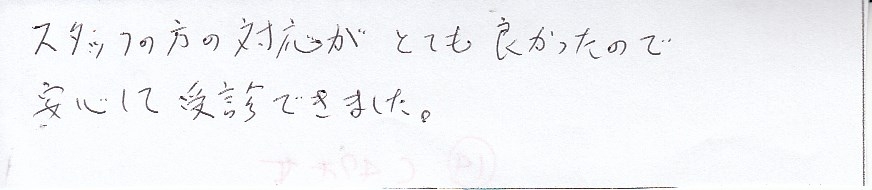 スタッフの方の対応がとても良かったので
安心して受診できました。